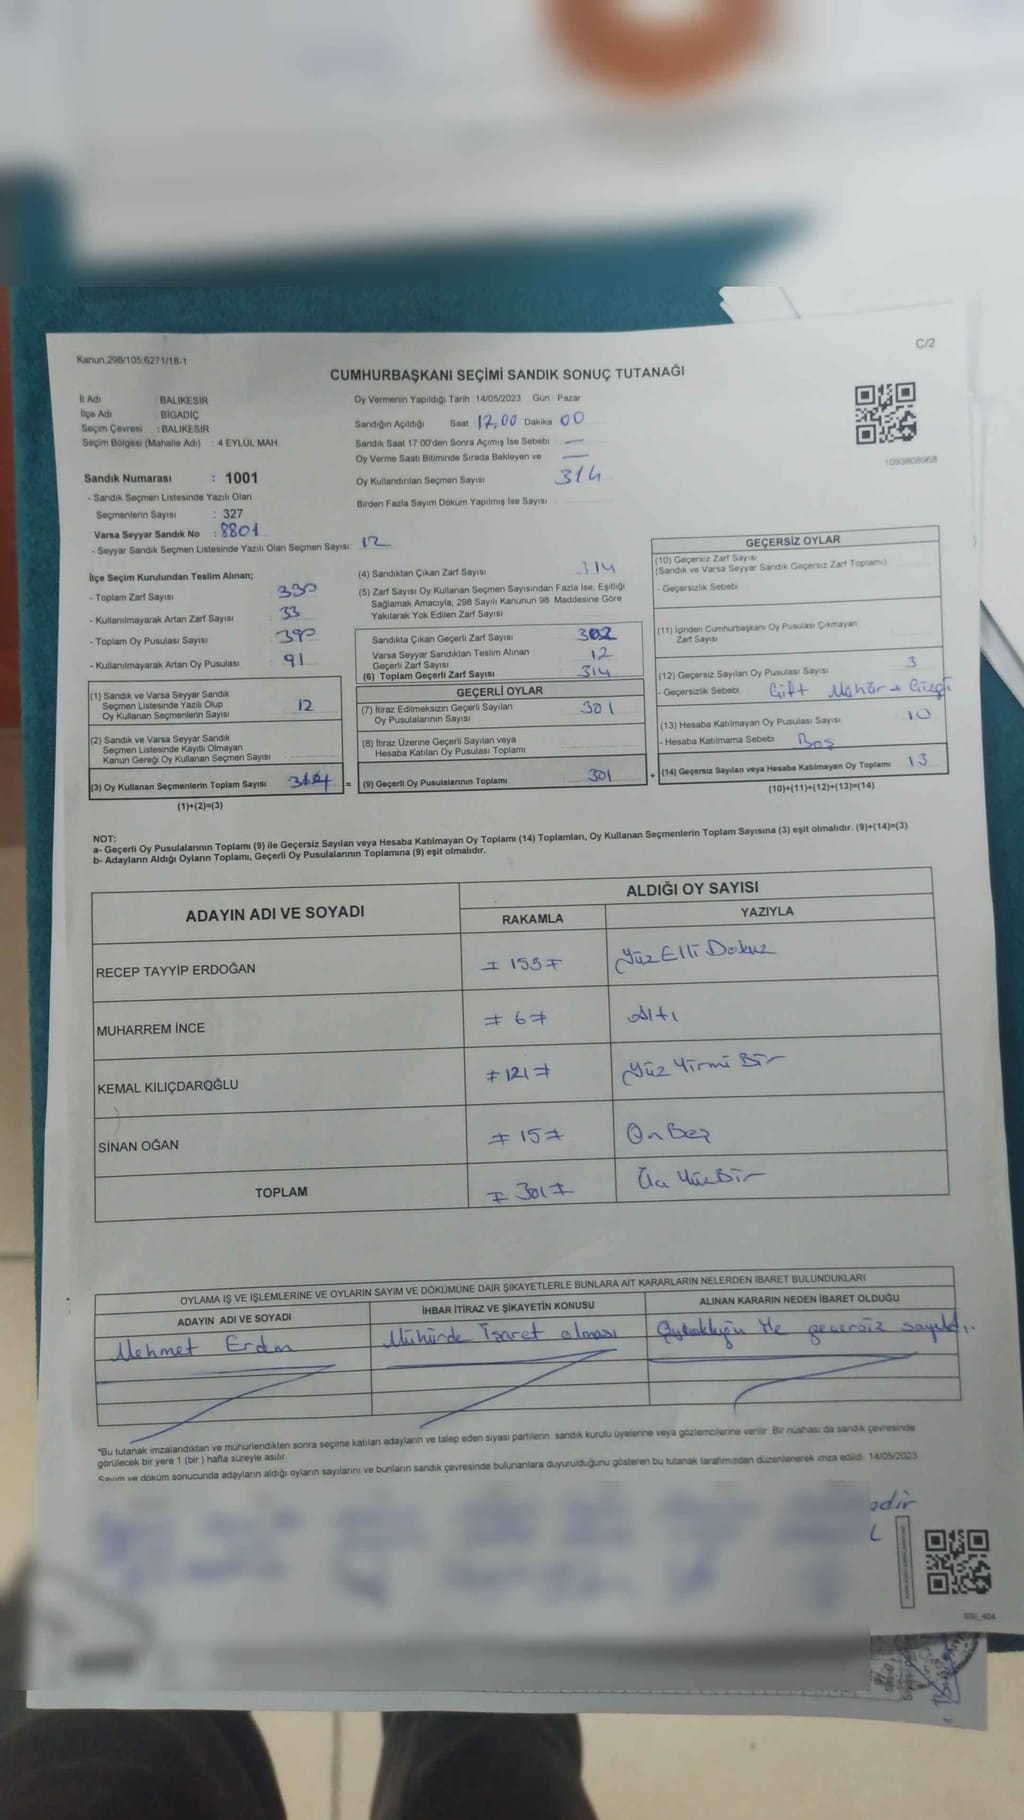 Kanun 298/105 6271/18-1
C/2
CUMHURBAŞKANI SEÇİMİ SANDIK SONUÇ TUTANAĞI
İl Adı BALIKESİR
İlçe Adı BİGADİÇ
Seçim Çevresi : BALIKESİR
Seçim Bölgesi (Mahalle Adı) : 4 EYLÜL MAH.
Oy Vermenin Yapıldığı Tarih : 14/05/2023 Gün Pazar
Sandığın Açıldığı Saat 17,00 Dakika 00
Sandık Saat 17:00'den Sonra Açımış İse Sebebi —
Oy Verme Saati Bitiminde Sırada Bekleyen ve —
Oy Kullandırılan Seçmen Sayısı 314
Birden Fazla Sayım Döküm Yapılmış İse Sayısı
1093808968
Sandık Numarası : 1001
- Sandık Seçmen Listesinde Yazılı Olan
Seçmenlerin Sayısı : 327
Varsa Seyyar Sandık No : 8801
- Seyyar Sandık Seçmen Listesinde Yazılı Olan Seçmen Sayısı: 12
İlçe Seçim Kurulundan Teslim Alınan;
- Toplam Zarf Sayısı 330
- Kullanılmayarak Artan Zarf Sayısı 33
- Toplam Oy Pusulası Sayısı 390
- Kullanılmayarak Artan Oy Pusulası 91
(1) Sandık ve Varsa Seyyar Sandık
Seçmen Listesinde Yazılı Olup
Oy Kullanan Seçmenlerin Sayısı 12
(2) Sandık ve Varsa Seyyar Sandık
Seçmen Listesinde Kayıtlı Olmayan
Kanun Gereği Oy Kullanan Seçmen Sayısı
(3) Oy Kullanan Seçmenlerin Toplam Sayısı =
(1)+(2)=(3)
(4) Sandıktan Çıkan Zarf Sayısı 314
(5) Zarf Sayısı Oy Kullanan Seçmen Sayısından Fazla İse, Eşitliği
Sağlamak Amacıyla, 298 Sayılı Kanunun 98. Maddesine Göre
Yakılarak Yok Edilen Zarf Sayısı
Sandıkta Çıkan Geçerli Zarf Sayısı 302
Varsa Seyyar Sandıktan Teslim Alınan
Geçerli Zarf Sayısı 12
(6) Toplam Geçerli Zarf Sayısı 314
GEÇERLİ OYLAR
(7) İtiraz Edilmeksizin Geçerli Sayılan
Oy Pusulalarının Sayısı 301
(8) İtiraz Üzerine Geçerli Sayılan veya
Hesaba Katılan Oy Pusulası Toplamı
(9) Geçerli Oy Pusulalarının Toplamı 301 +
GEÇERSİZ OYLAR
(10) Geçersiz Zarf Sayısı
(Sandık ve Varsa Seyyar Sandık Geçersiz Zarf Toplamı)
- Geçersizlik Sebebi
(11) İçinden Cumhurbaşkanı Oy Pusulası Çıkmayan
Zarf Sayısı
(12) Geçersiz Sayılan Oy Pusulası Sayısı 3
- Geçersizlik Sebebi Çift Mühür +
(13) Hesaba Katılmayan Oy Pusulası Sayısı 10
- Hesaba Katılmama Sebebi Boş
(14) Geçersiz Sayılan veya Hesaba Katılmayan Oy Toplamı 13
(10)+(11)+(12)+(13)=(14)
NOT:
a- Geçerli Oy Pusulalarının Toplamı (9) ile Geçersiz Sayılan veya Hesaba Katılmayan Oy Toplamı (14) Toplamları, Oy Kullanan Seçmenlerin Toplam Sayısına (3) eşit olmalıdır. (9)+(14)=(3)
b- Adayların Aldığı Oyların Toplamı, Geçerli Oy Pusulalarının Toplamına (9) eşit olmalıdır.
ADAYIN ADI VE SOYADI
ALDIĞI OY SAYISI
RAKAMLA YAZIYLA
RECEP TAYYİP ERDOĞAN 159 Yüz Elli Dokuz
MUHARREM İNCE 6 Altı
KEMAL KILIÇDAROĞLU 121 Yüz Yirmi Bir
SİNAN OĞAN 15 On Beş
TOPLAM 301 Üç Yüz Bir
OYLAMA İŞ VE İŞLEMLERİNE VE OYLARIN SAYIM VE DÖKÜMÜNE DAİR ŞİKAYETLERLE BUNLARA AİT KARARLARIN NELERDEN İBARET BULUNDUKLARI
ADAYIN ADI VE SOYADI İHBAR İTİRAZ VE ŞİKAYETİN KONUSU ALINAN KARARIN NEDEN İBARET OLDUĞU
Mehmet Erdem Mühürde İşaret olması Oyçokluğu ile geçersiz sayıldı.
*Bu tutanak imzalandıktan ve mühürlendikten sonra seçime katılan adayların ve talep eden siyasi partilerin sandık kurulu üyelerine veya gözlemcilerine verilir. Bir nüshası da sandık çevresinde
görülecek bir yere 1 (bir) hafta süreyle asılır.
Sayım ve döküm sonucunda adayların aldığı oyların sayılarını ve bunların sandık çevresinde bulunanlara duyurulduğunu gösteren bu tutanak tarafımızdan düzenlenerek imza edildi. 14/05/2023